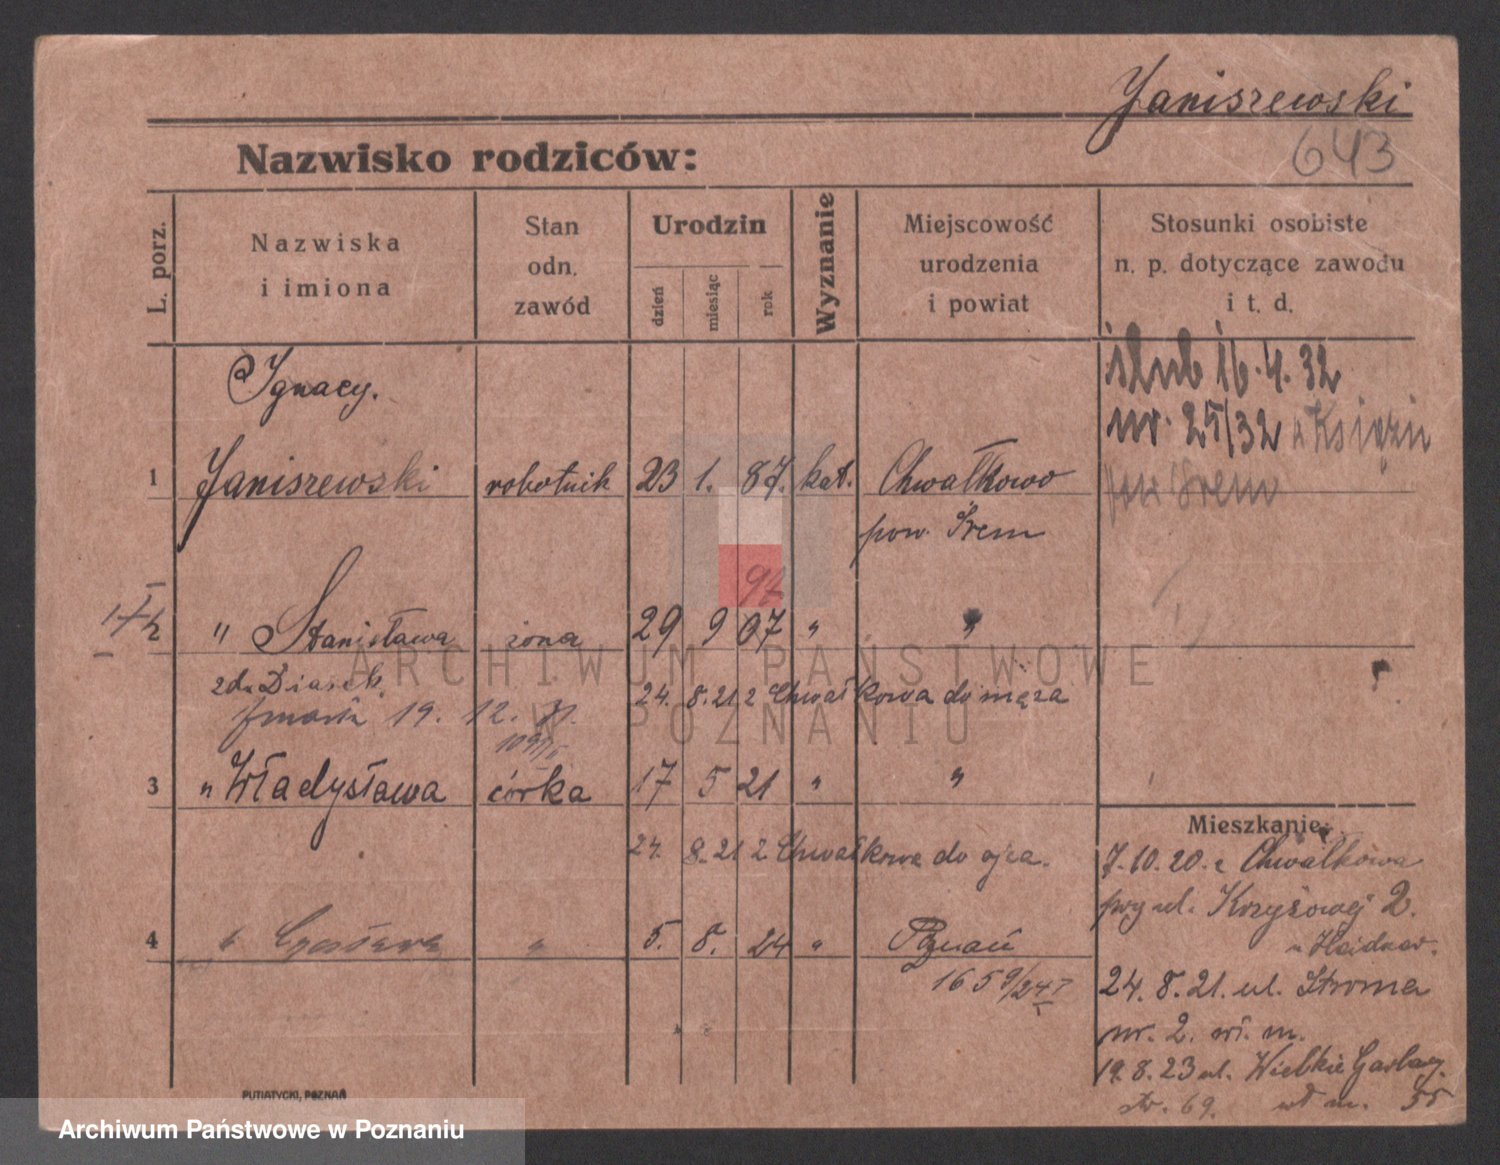 Janiszewski
643
Nazwisko rodziców:
L. porz.
Nazwiska
i imiona
Stan
odn.
zawód
Urodzin
dzień
miesiąc
rok
Wyznanie
Miejscowość
urodzenia
i powiat
Stosunki osobiste
n. p. dotyczące zawodu
i t. d.
Ignacy.
ślub 16.4.32
nr. 25/32 w Książu
pow Śrem
1 Janiszewski robotnik 23 1. 87. kat. Chwałkowo
pow. Śrem
92
2 " Stanisława żona 29 9 07 " "
zd.
24. 8.21 z Chwałkowa do męża
19. 12. 31.
3 " Władysława córka 17 5 21 " "
24. 8.21 z Chwałkowa do ojca.
4 " Czesława " 5. 8. 24 " Poznań
1659/24
Mieszkanie:
7.10.20. z Chwałkowa
przy ul. Krzyżowej 2.
24.8.21. ul. Stroma
nr. 2. wł. m.
19.8.23 ul. Wielkie Garbary
str. 69. wł m. 55
PUTIATYCKI, POZNAŃ
ARCHIWUM PAŃSTWOWE
W POZNANIU
Archiwum Państwowe w Poznaniu